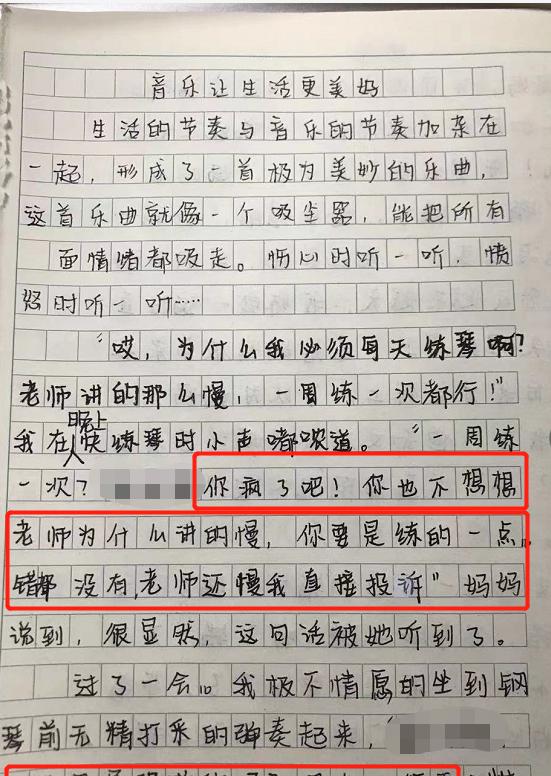 音乐让生活更美好
生活的节奏与音乐的节奏加杂在
一起，形成了一首极为美妙的乐曲，
这首乐曲就像一个吸尘器，能把所有
面情绪都吸走。伤心时听一听，愤
怒时听一听……
“哎，为什么我必须每天练琴啊？
老师讲的那么慢，一周练一次都行！”
我在晚上快练琴时小声嘟哝道。“一周练
一次？你疯了吧！你也不想想
老师为什么讲的慢，你要是练的一点
错都没有，老师还慢我直接投诉”妈妈
说到，很显然，这句话被她听到了。
过了一会儿我极不情愿的坐到钢
琴前无精打采的弹奏起来，